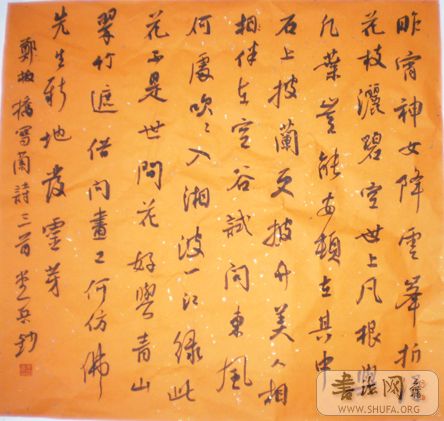 昨宵神女降雲峯折
花枝灑碧空世上凡根與
凡葉豈能安頓在其中
石上披蘭更披竹美人相
相伴在空谷試問東風
何處吹〻入湘波一江綠此
花不是世間花好學青山
翠竹遮借問畫工何仿佛
先生新地發靈芽
鄭板橋寫蘭詩三首 兵鈔
書法网
WWW.SHUFA.ORG